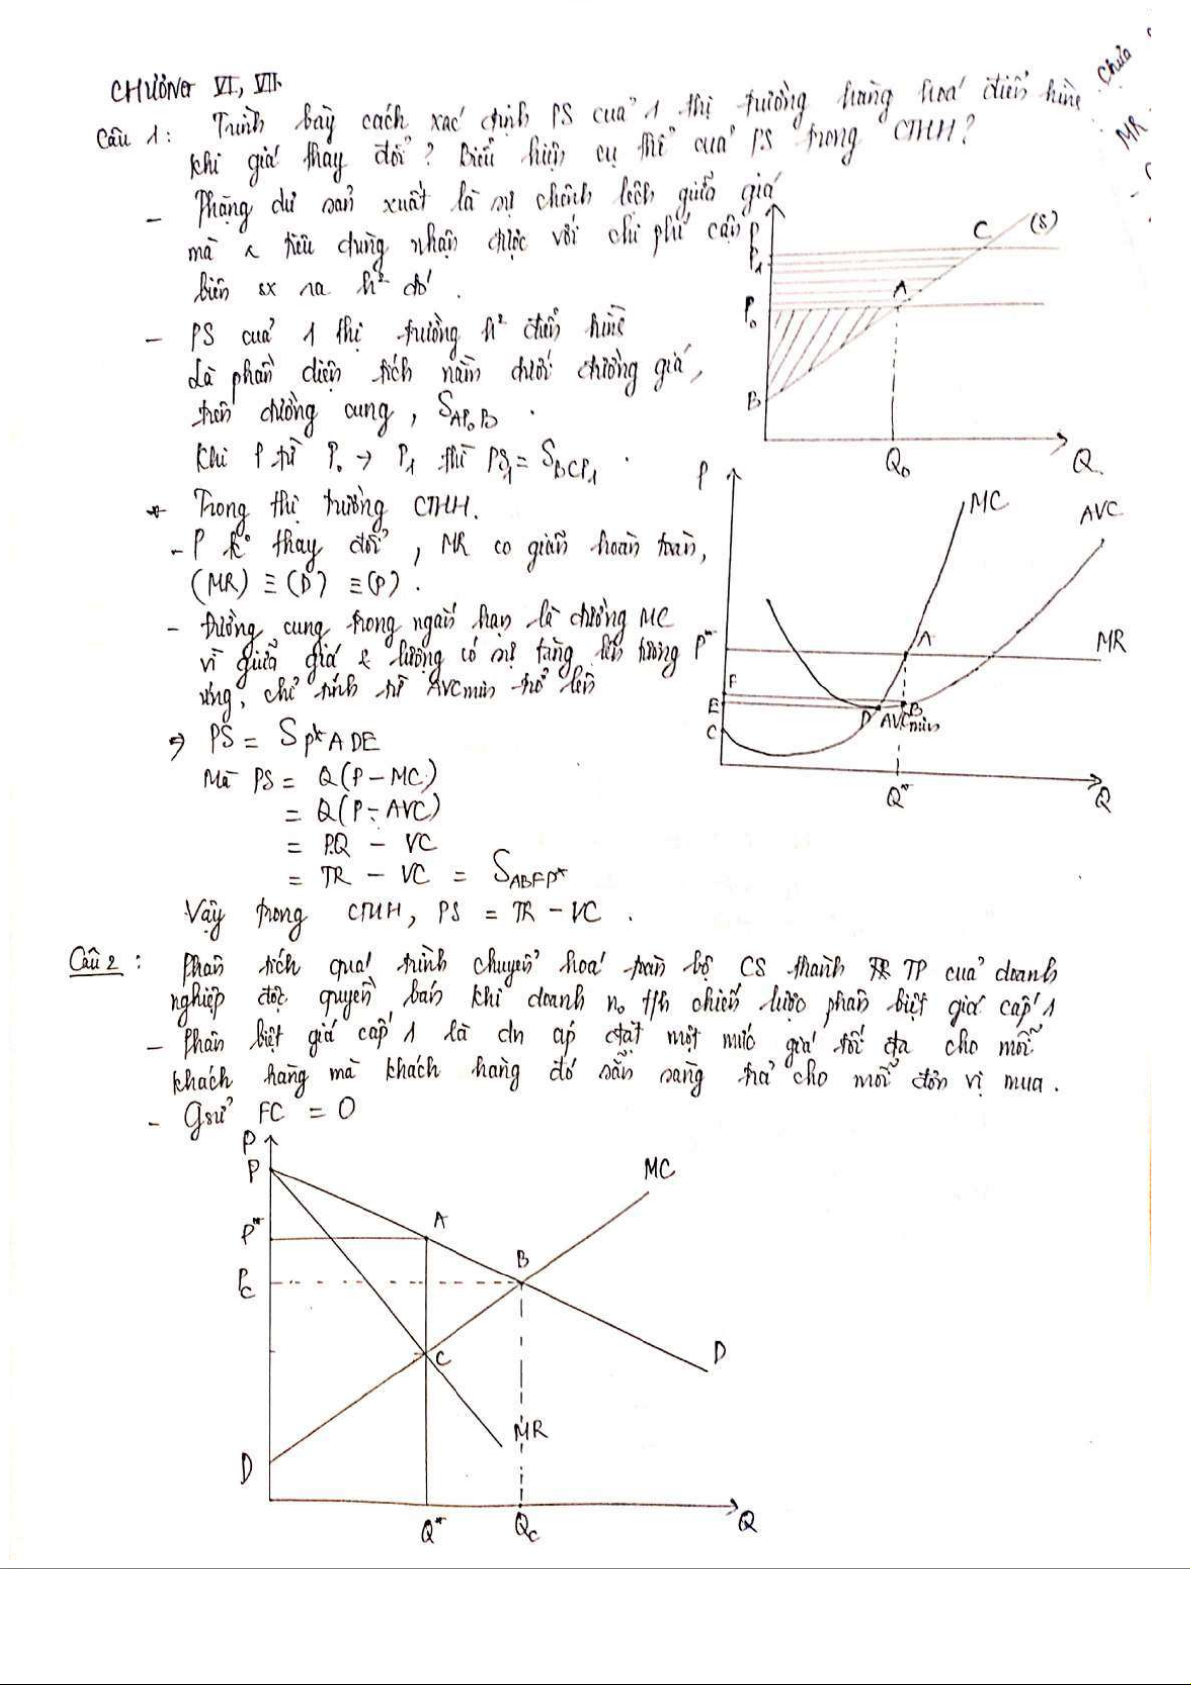 CHƯƠNG VI, VII.
Câu 1: Trình bày cách xác định PS của 1 thị trường hàng hoá điển hình
khi giá thay đổi? Biểu hiện cụ thể của PS trong CTHH?
- Thặng dư sản xuất là sự chênh lệch giữa giá
mà tiêu dùng nhận được với chi phí cận
biên sx ra h² đó.
- PS của 1 thị trường h² điển hình
Là phần diện tích nằm dưới đường giá,
trên đường cung, S_AP₀B.
Khi P từ P₀ → P₁ thì PS₁ = S_BCP₁.
* Trong thị trường CTHH.
- P k° thay đổi, MR co giãn hoàn toàn,
(MR) ≡ (D) ≡ (P).
- Đường cung trong ngắn hạn là đường MC
vì giữa giá & lượng có sự tăng lên tương
ứng, chỉ tính từ AVCmin trở lên
⇒ PS = S P*ADE
Mà PS = Q(P - MC)
= Q(P - AVC)
= P.Q - VC
= TR - VC = S_ABFP*
Vậy trong CTHH, PS = TR - VC.
P
P₁
P₀
B
A
C
(S)
Q₀
Q
P
MC
AVC
P*
A
MR
F
E
C
D
B
AVCmin
Q*
Q
Chưa
MR
Câu 2: Phân tích quá trình chuyển hoá toàn bộ CS thành TP của doanh
nghiệp độc quyền bán khi doanh n₀ t/h chiến lược phân biệt giá cấp 1
- Phân biệt giá cấp 1 là dn áp đặt một mức giá tối đa cho mỗi
khách hàng mà khách hàng đó sẵn sàng trả cho mỗi đơn vị mua.
- Gsử FC = 0
P
P
MC
P*
A
Pc
B
C
D
MR
D
Q*
Qc
Q